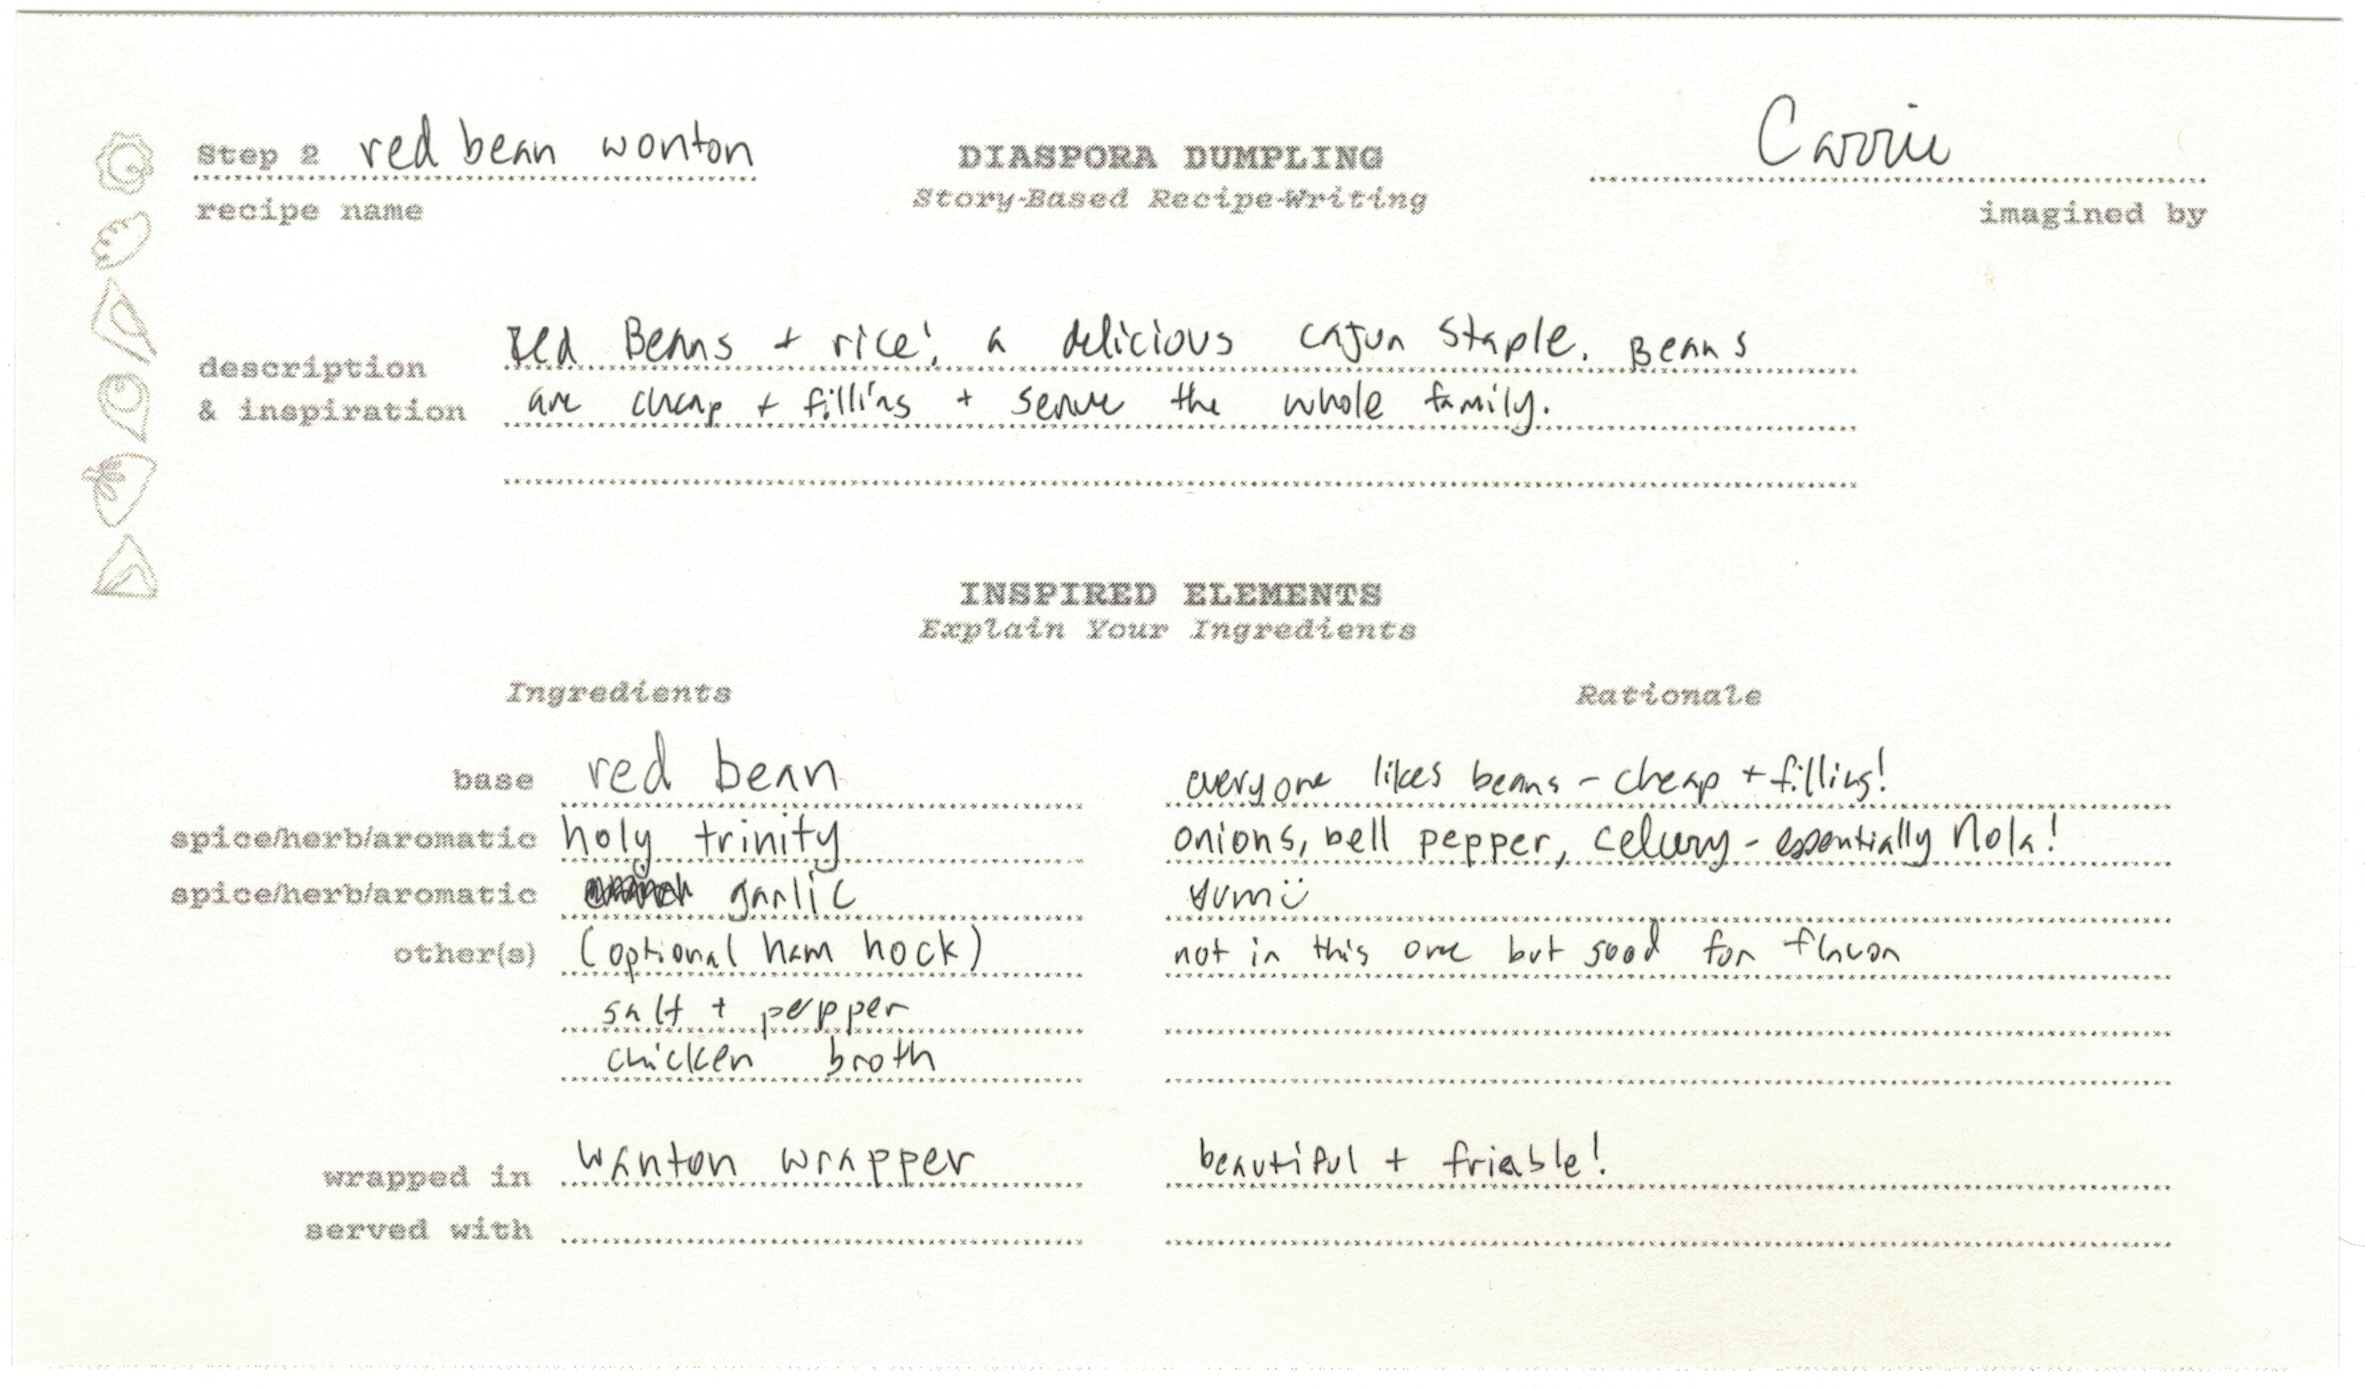 Step 2 red bean wonton
recipe name
DIASPORA DUMPLING
Story-Based Recipe-Writing
Carrie
imagined by
description
& inspiration
Red Beans + rice! a delicious cajun staple. Beans
are cheap + filling + serve the whole family.
INSPIRED ELEMENTS
Explain Your Ingredients
Ingredients Rationale
base red bean everyone likes beans - cheap + filling!
spice/herb/aromatic holy trinity onions, bell pepper, celery - essentially Nola!
spice/herb/aromatic garlic yum :)
other(s) (optional ham hock) not in this one but good for flavor
salt + pepper
chicken broth
wrapped in wanton wrapper beautiful + friable!
served with